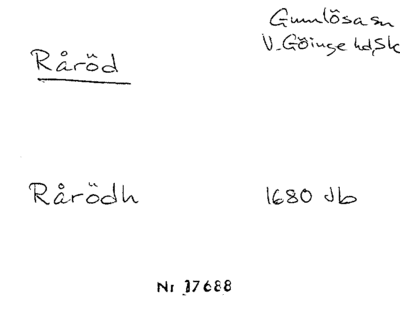 Gumlösa sn
V. Göinge hd, Sk
Råröd
Rårödh 1680 Jb
Nr 17688